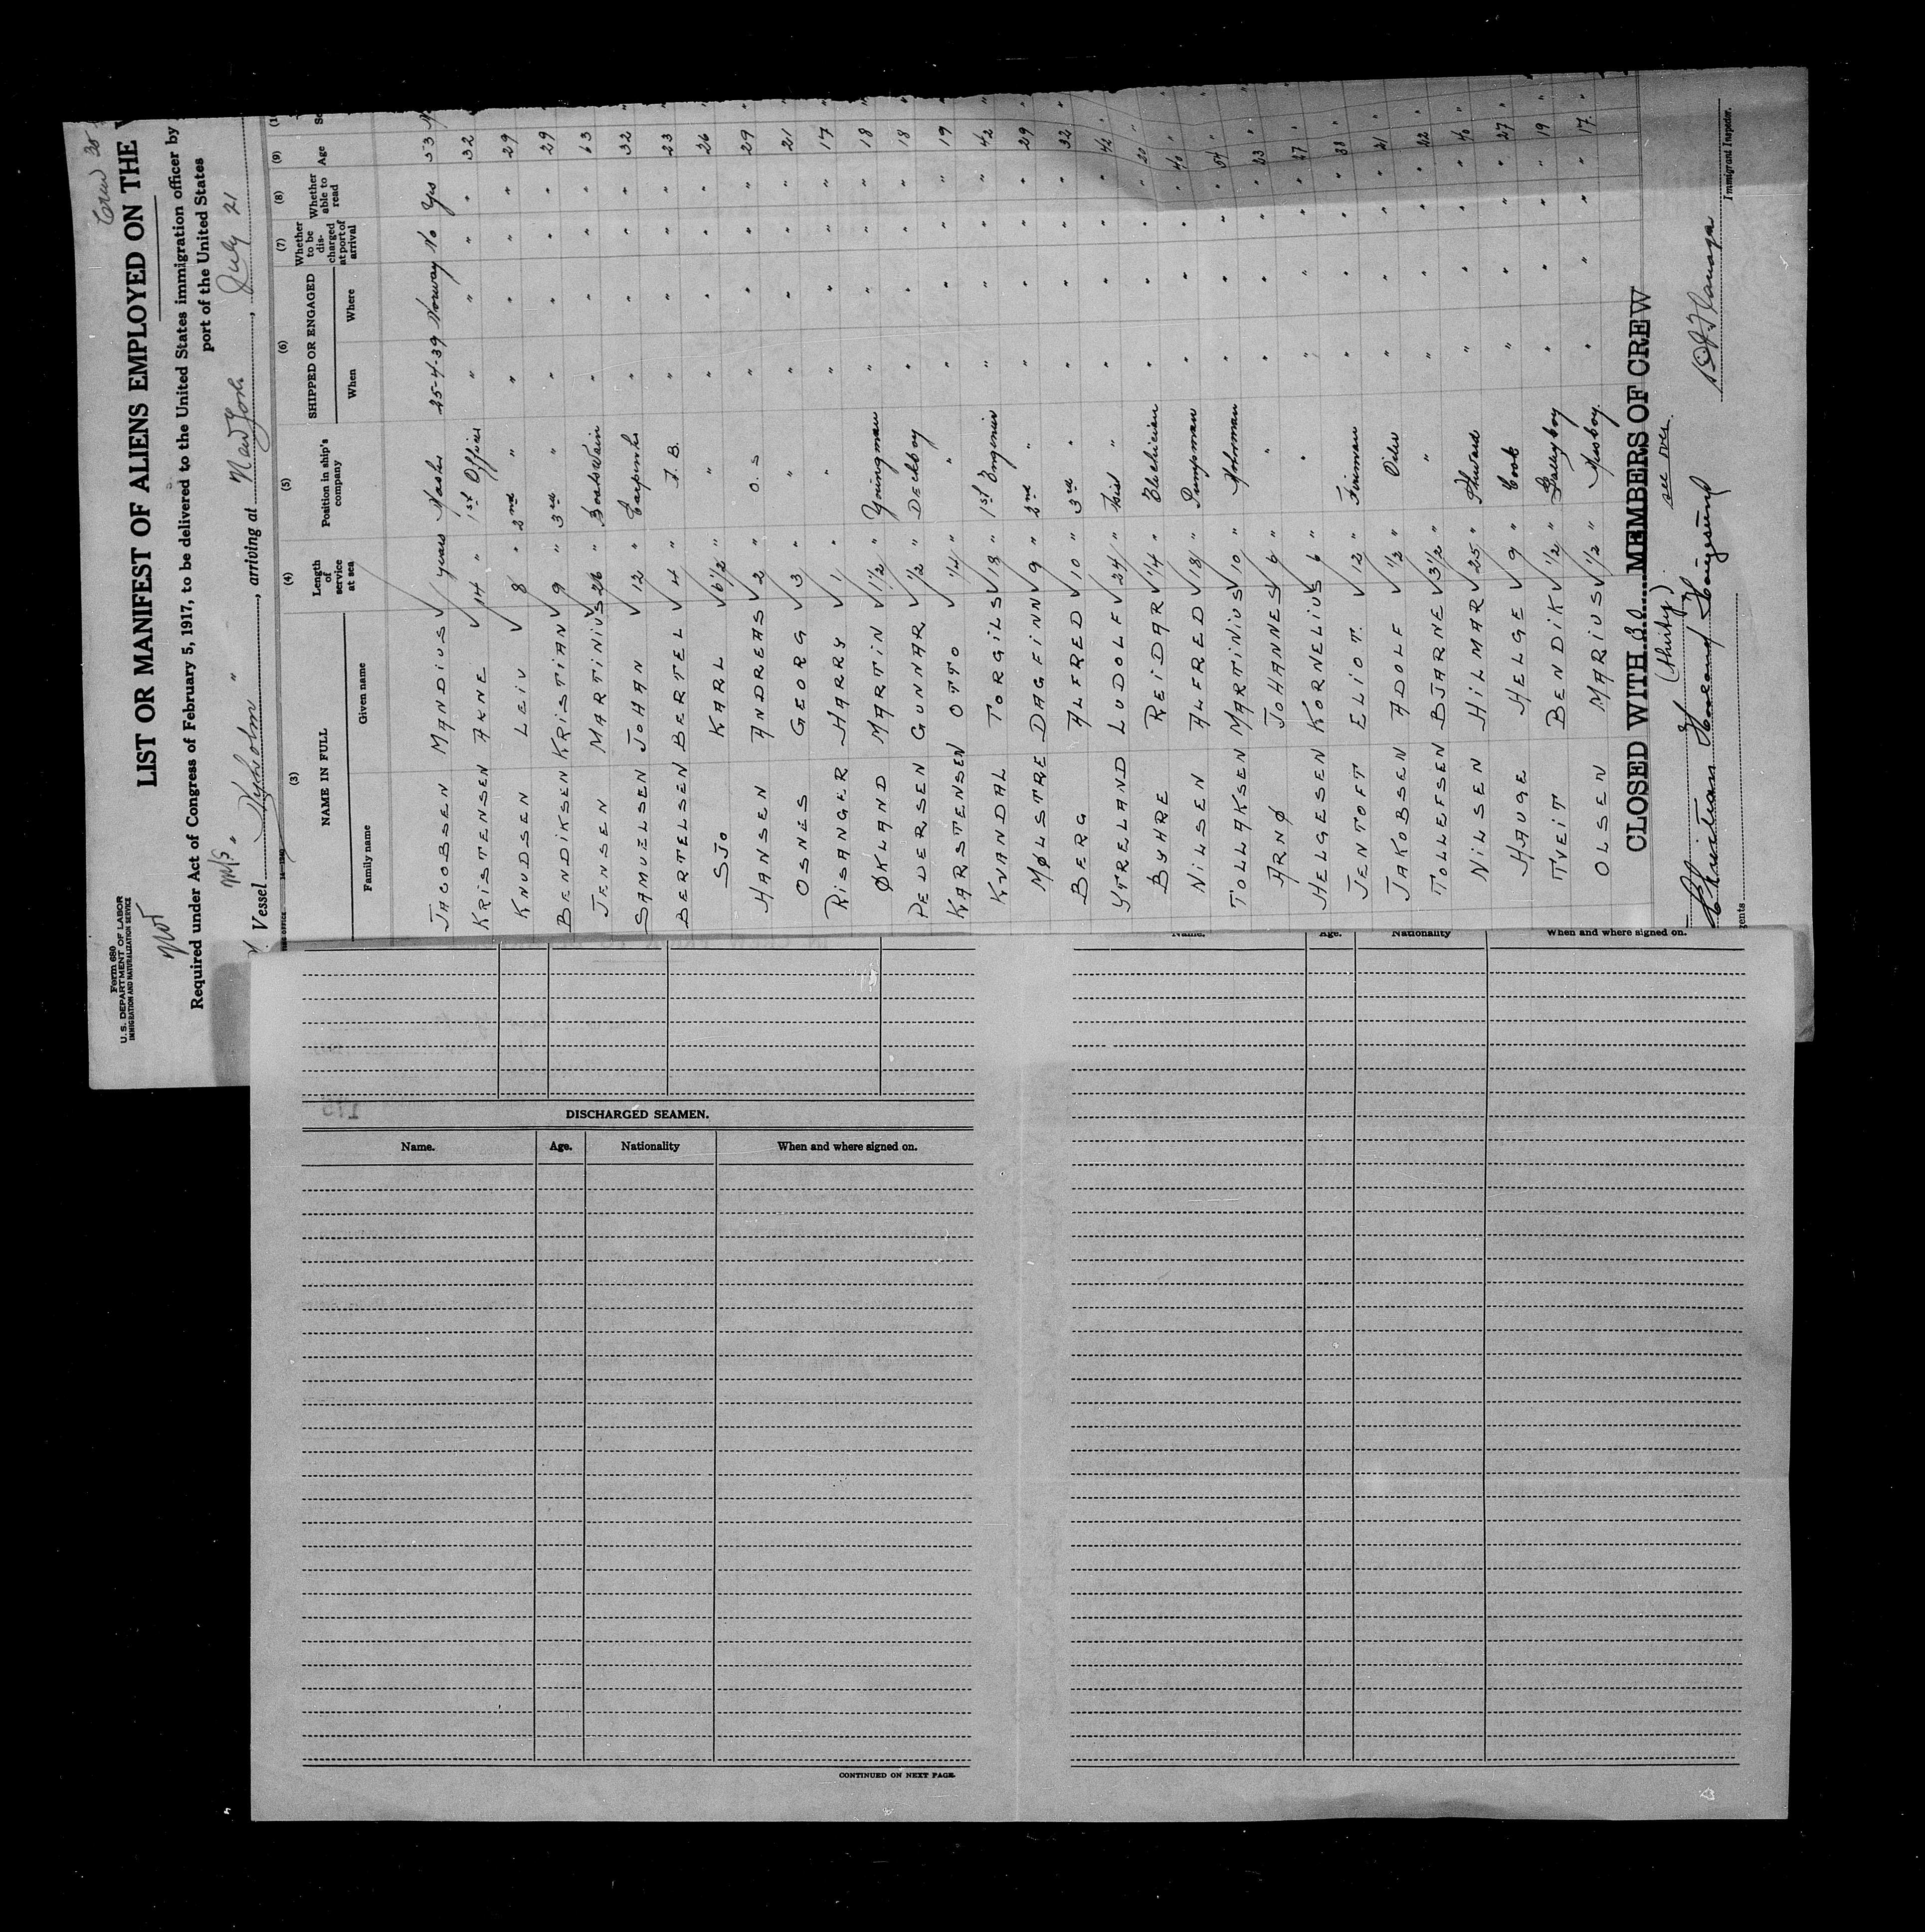 Form 680
U. S. DEPARTMENT OF LABOR
IMMIGRATION AND NATURALIZATION SERVICE
Crew 30
LIST OR MANIFEST OF ALIENS EMPLOYED ON THE
Required under Act of Congress of February 5, 1917, to be delivered to the United States immigration officer by
port of the United States
M/S " "
Vessel , arriving at New York , July 21
(3) (4) (5) (6) (7) (8) (9)
NAME IN FULL Length of service at sea Position in ship's company SHIPPED OR ENGAGED Whether to be discharged at port of arrival Whether able to read Age
Family name Given name When Where
JACOBSEN MANDIUS years Master 25-4-39 Norway No Yes 53
KRISTENSEN ARNE 14 " 1st Officer " " " " 32
KNUDSEN LEIV 8 " 2nd " " " " " 29
BENDIKSEN KRISTIAN 9 " 3rd " " " " " 29
JENSEN MARTINIUS 26 " Boatswain " " " " 63
SAMUELSEN JOHAN 12 " Carpenter " " " " 32
BERTELSEN BERTEL 4 " A. B. " " " " 23
SJO KARL 6 1/2 " " " " " " 26
HANSEN ANDREAS 2 " O. S " " " " 29
OSNES GEORG 3 " " " " " " 21
RISANGER HARRY 1 " " " " " " 17
ØKLAND MARTIN 1 1/2 " Youngman " " " " 18
PEDERSEN GUNNAR 1/2 " Deckboy " " " " 18
KARSTENSEN OTTO 1/4 " " " " " " 19
KVANDAL TORGILS 18 " 1st Enginier " " " " 42
MØLSTRE DAGFINN 9 " 2nd " " " " " 29
BERG ALFRED 10 " 3rd " " " " " 32
YTRELAND LUDOLF 24 " " " " " " 42
BYHRE REIDAR 1/4 " Electrician " " " " 20
NILSEN ALFRED 18 " Pumpman " " " " 40
TOLLAKSEN MARTINIUS 10 " " " " " 54
ARNØ JOHANNES 6 " " " " " " 23
HELGESEN KORNELIUS 6 " " " " " " 27
JENTOFT ELIOT. 12 " Fireman " " " " 33
JAKOBSEN ADOLF 1/2 " Oiler " " " " 21
TOLLEFSEN BJARNE 3 1/2 " " " " " " 22
NILSEN HILMAR 25 " Stuard " " " " 40
HAUGE HELGE 9 " Cook " " " " 27
TVEIT BENDIK 1/2 " Galleyboy " " " " 19
OLSEN MARIUS 1/2 " Messboy. " " " " 17.
CLOSED WITH 30 MEMBERS OF CREW
(thirty) see over.
Christian Haaland Haugesund
Immigrant Inspector.
Name. Age. Nationality When and where signed on.
DISCHARGED SEAMEN.
Name. Age. Nationality When and where signed on.
CONTINUED ON NEXT PAGE.